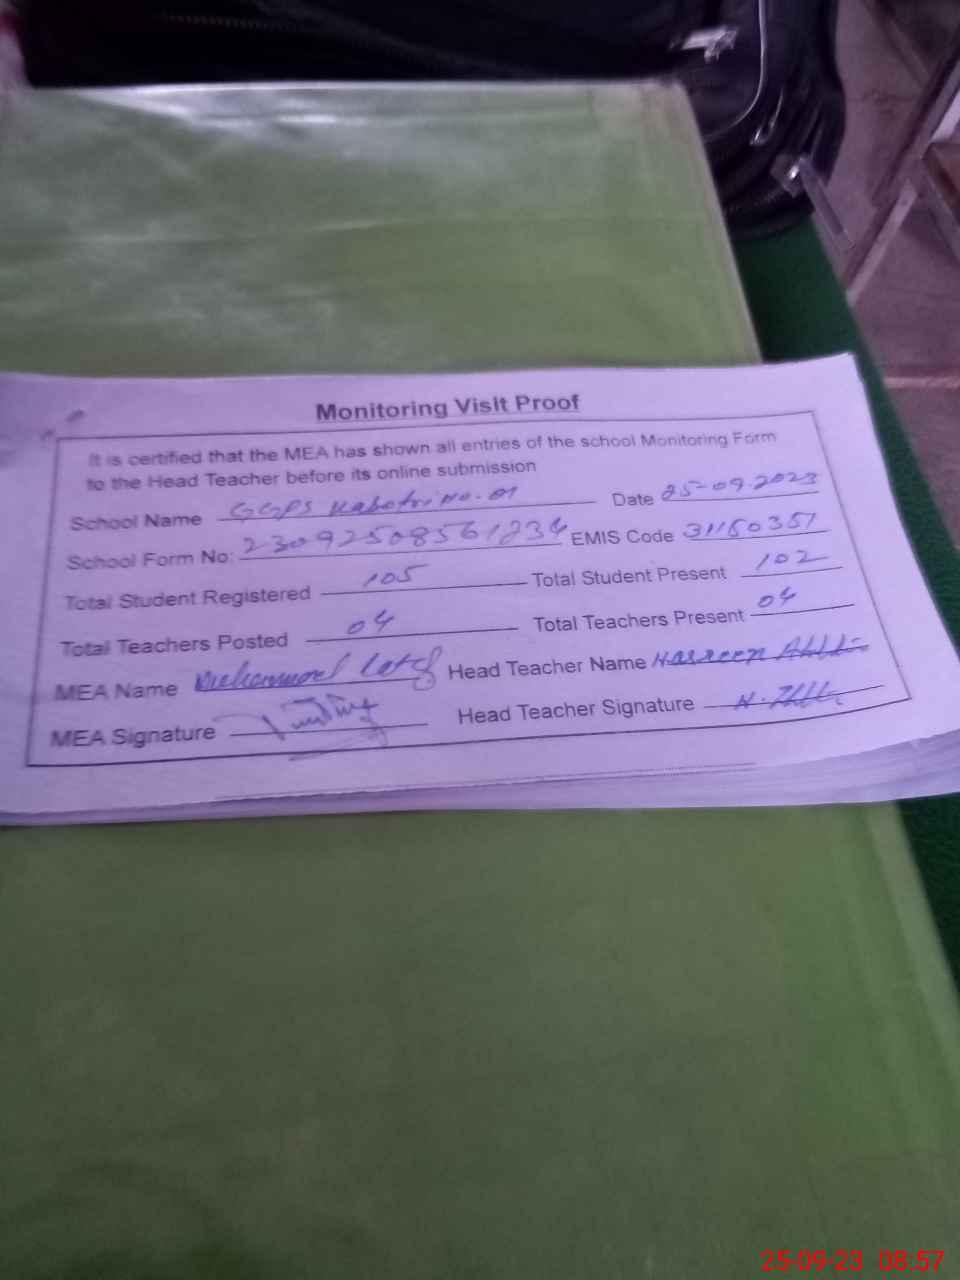 Monitoring Visit Proof
It is certified that the MEA has shown all entries of the school Monitoring Form
to the Head Teacher before its online submission
School Name GGPS No. 01 Date 25-09-2023
School Form No: 23092508561234 EMIS Code 31150351
Total Student Registered 105 Total Student Present 102
Total Teachers Posted 04 Total Teachers Present 04
MEA Name Muhammad Latif Head Teacher Name Nasreen
MEA Signature Head Teacher Signature
25-09-23 08:57